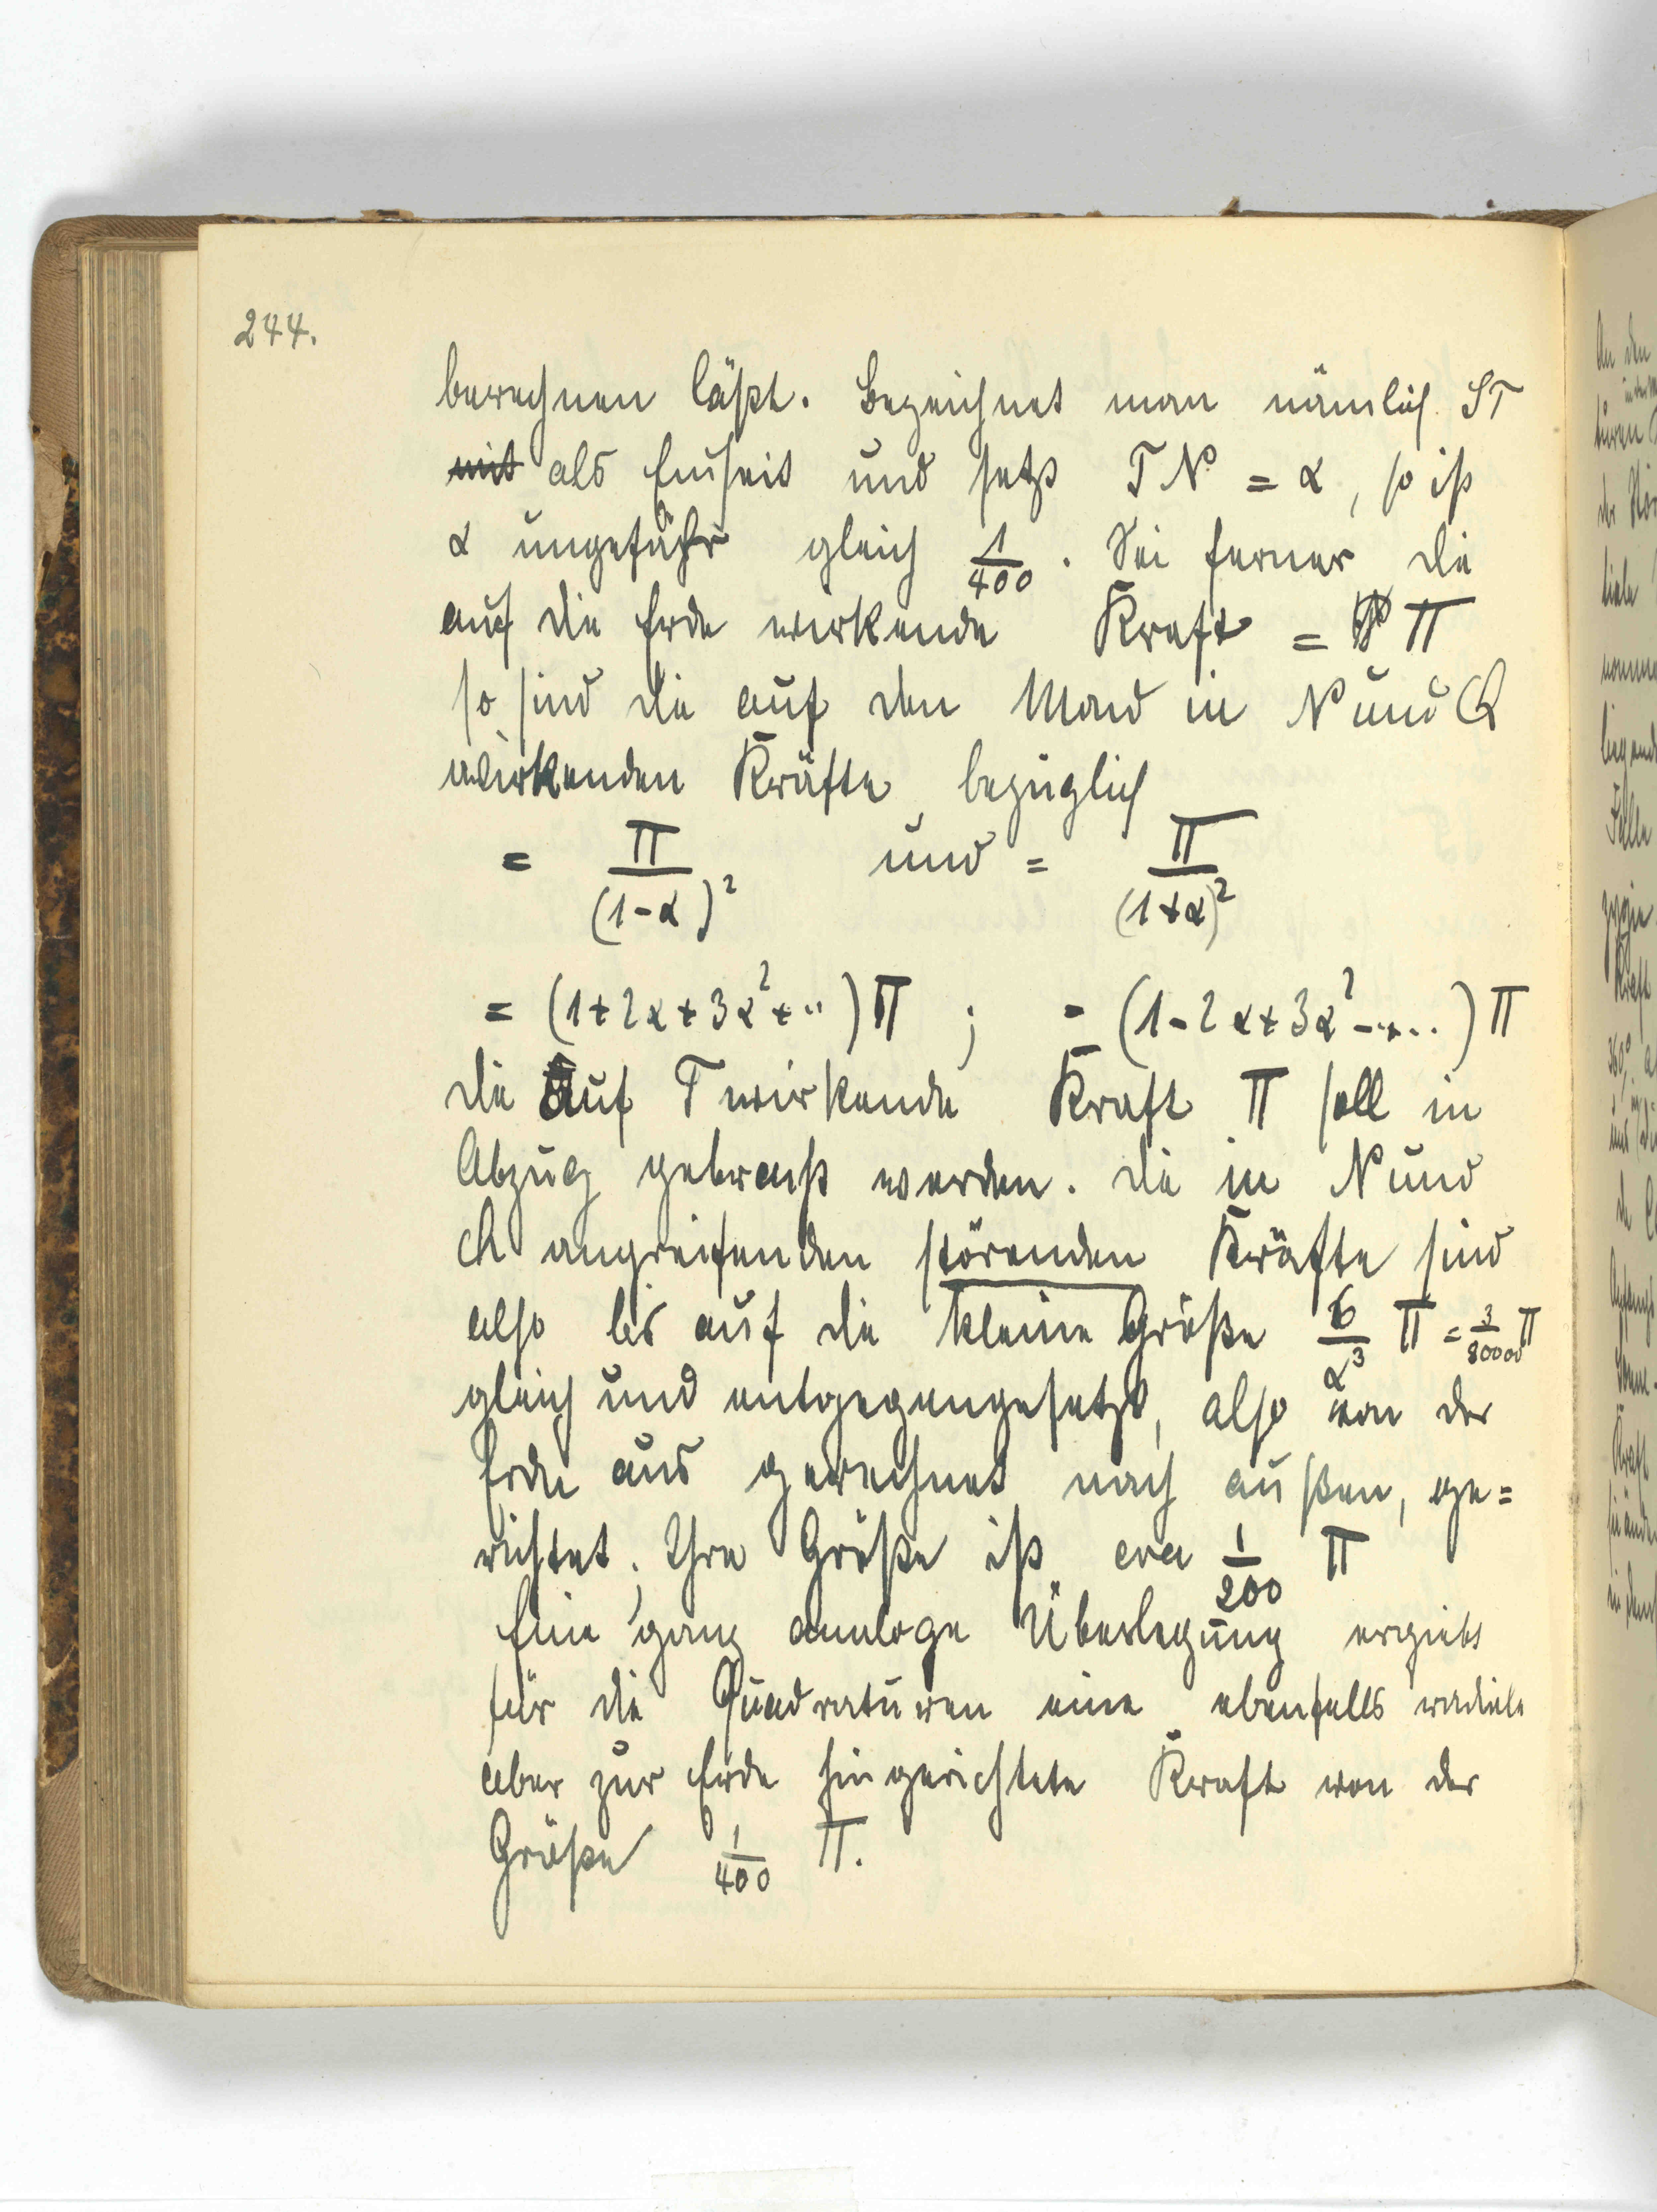 244.
berechnen läßt. Bezeichnet man nämlich ST
mit als Einheit und setzt TN = α, so ist
α ungefähr gleich 1/400. Sei ferner die
auf die Erde wirkende Kraft = Π
so sind die auf den Mond in N und Q
wirkenden Kräfte bezüglich
= Π/(1-α)² und = Π/(1+α)²
= (1+2α+3α²+··)Π ; = (1-2α+3α²-+··)Π
die auf T wirkende Kraft Π soll in
Abzug gebracht werden. Die in N und
Q angreifenden störenden Kräfte sind
also bis auf die kleine Größe 6/α³ Π = 3/80000 Π
gleich und entgegengesetzt, also von der
Erde aus gerechnet nach außen, ge=
richtet; Ihre Größe ist cca 1/200 Π
Eine ganz analoge Überlegung ergiebt
für die Quadraturen eine ebenfalls radiale
aber zur Erde hingerichtete Kraft von der
Größe 1/400 Π.